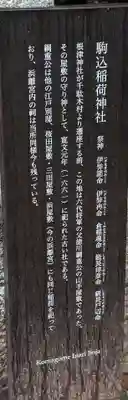 駒込稲荷神社
祭神 伊弉諾命 伊弉冉命 倉稲魂命 級長津彦命 級長戸辺命
根津神社が千駄木村より遷座する前、この地は六代将軍の父徳川綱重公の山手屋敷であった。
その屋敷の守り神として、寛文元年(一六六一)に祀られた古い社である。
綱重公は他の江戸別邸、桜田屋敷・三田屋敷・浜屋敷(今の浜離宮)にも同じ稲荷を祀って
おり、浜離宮内の祠は当所同様今も残っている。
Komagome Inari Jinja